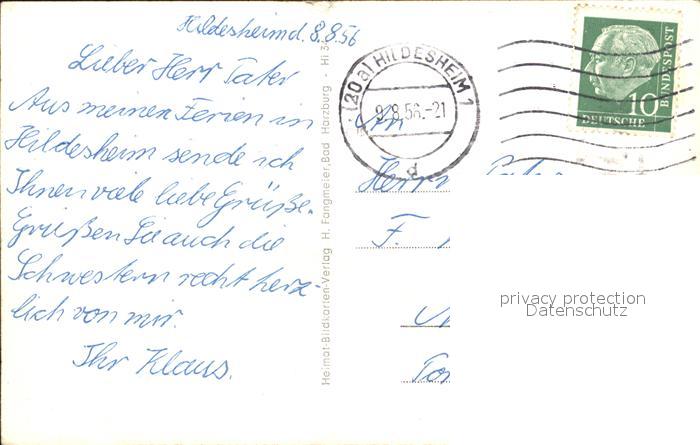 Hildesheim d. 8.8.56
Lieber Herr Pater
Aus meinen Ferien in
Hildesheim sende ich
Ihnen viele liebe Grüße.
Grüßen Sie auch die
Schwestern recht herz-
lich von mir.
Ihr Klaus.
Heimat-Bildkarten-Verlag H. Fangmeier, Bad Harzburg - Hi
(20a) HILDESHEIM 1
9.8.56.-21
d
10
DEUTSCHE
BUNDESPOST
An
Herrn
F.
privacy protection
Datenschutz